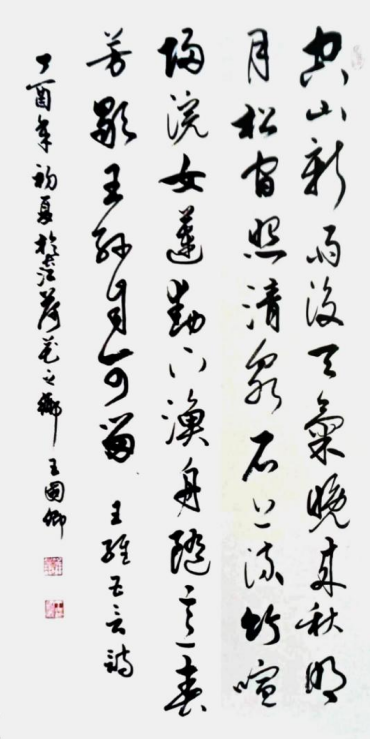 空山新雨後天氣晚来秋明
月松间照清泉石上流竹喧
歸浣女蓮動下漁舟隨意春
芳歇王孫自可留 王維五言詩
丁酉年初夏於荷花之鄉 王國卿